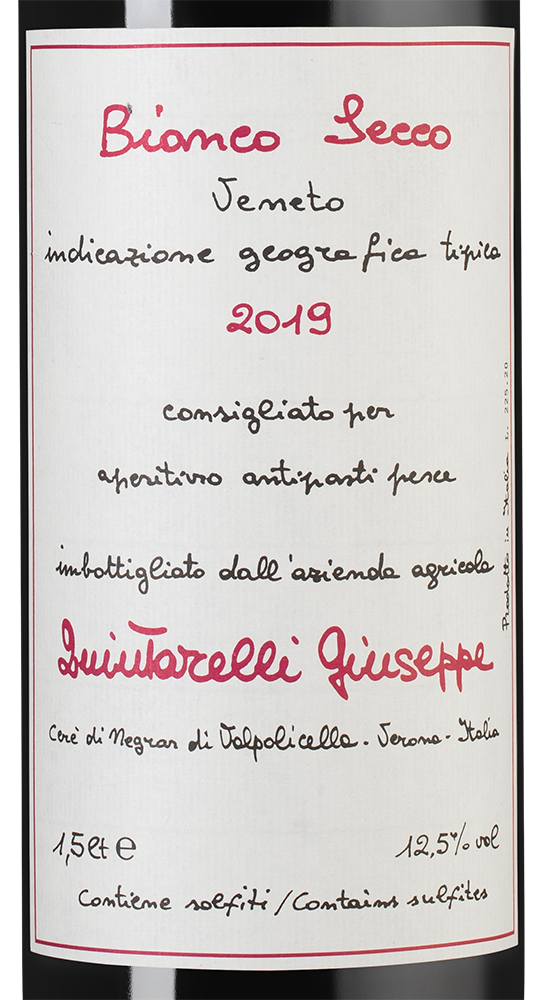 Bianco Secco
Veneto
indicazione geografica tipica
2019
consigliato per
aperitivo antipasti pesce
imbottigliato dall'azienda agricola
Quintarelli Giuseppe
Cerè di Negrar di Valpolicella - Verona - Italia
1,5lt e
12,5% vol
Contiene solfiti / Contains sulfites
Prodotto in Italia L. 225.20